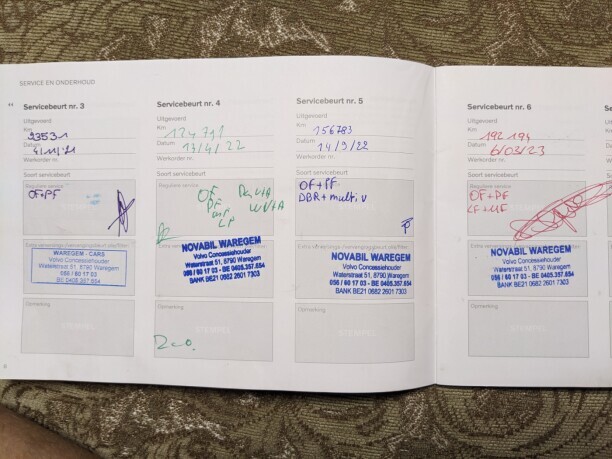 SERVICE EN ONDERHOUD
Servicebeurt nr. 3
Uitgevoerd
Km 93531
Datum 4/11/21
Werkorder nr.
Soort servicebeurt
Reguliere service
OF+PF
WAREGEM - CARS
Volvo Concessiehouder
Waterstraat 51, 8790 Waregem
056 / 60 17 03
BE 0405.357.654
Opmerking
Servicebeurt nr. 4
Uitgevoerd
Km 124791
Datum 13/4/22
Werkorder nr.
Soort servicebeurt
Reguliere service
OF
PF
LF
NOVABIL WAREGEM
Volvo Concessiehouder
Waterstraat 51, 8790 Waregem
056 / 60 17 03 - BE 0405.357.654
BANK BE21 0682 2601 7303
Opmerking
Servicebeurt nr. 5
Uitgevoerd
Km 156783
Datum 14/9/22
Werkorder nr.
Soort servicebeurt
OF+PF
DBR+multi v
NOVABIL WAREGEM
Volvo Concessiehouder
Waterstraat 51, 8790 Waregem
056 / 60 17 03 - BE 0405.357.654
BANK BE21 0682 2601 7303
Opmerking
Servicebeurt nr. 6
Uitgevoerd
Km 192194
Datum 6/03/23
Werkorder nr.
Soort servicebeurt
Reguliere service
OF+PF
NOVABIL WAREGEM
Volvo Concessiehouder
Waterstraat 51, 8790 Waregem
056 / 60 17 03 - BE 0405.357.654
BANK BE21 0682 2601 7303
Opmerking